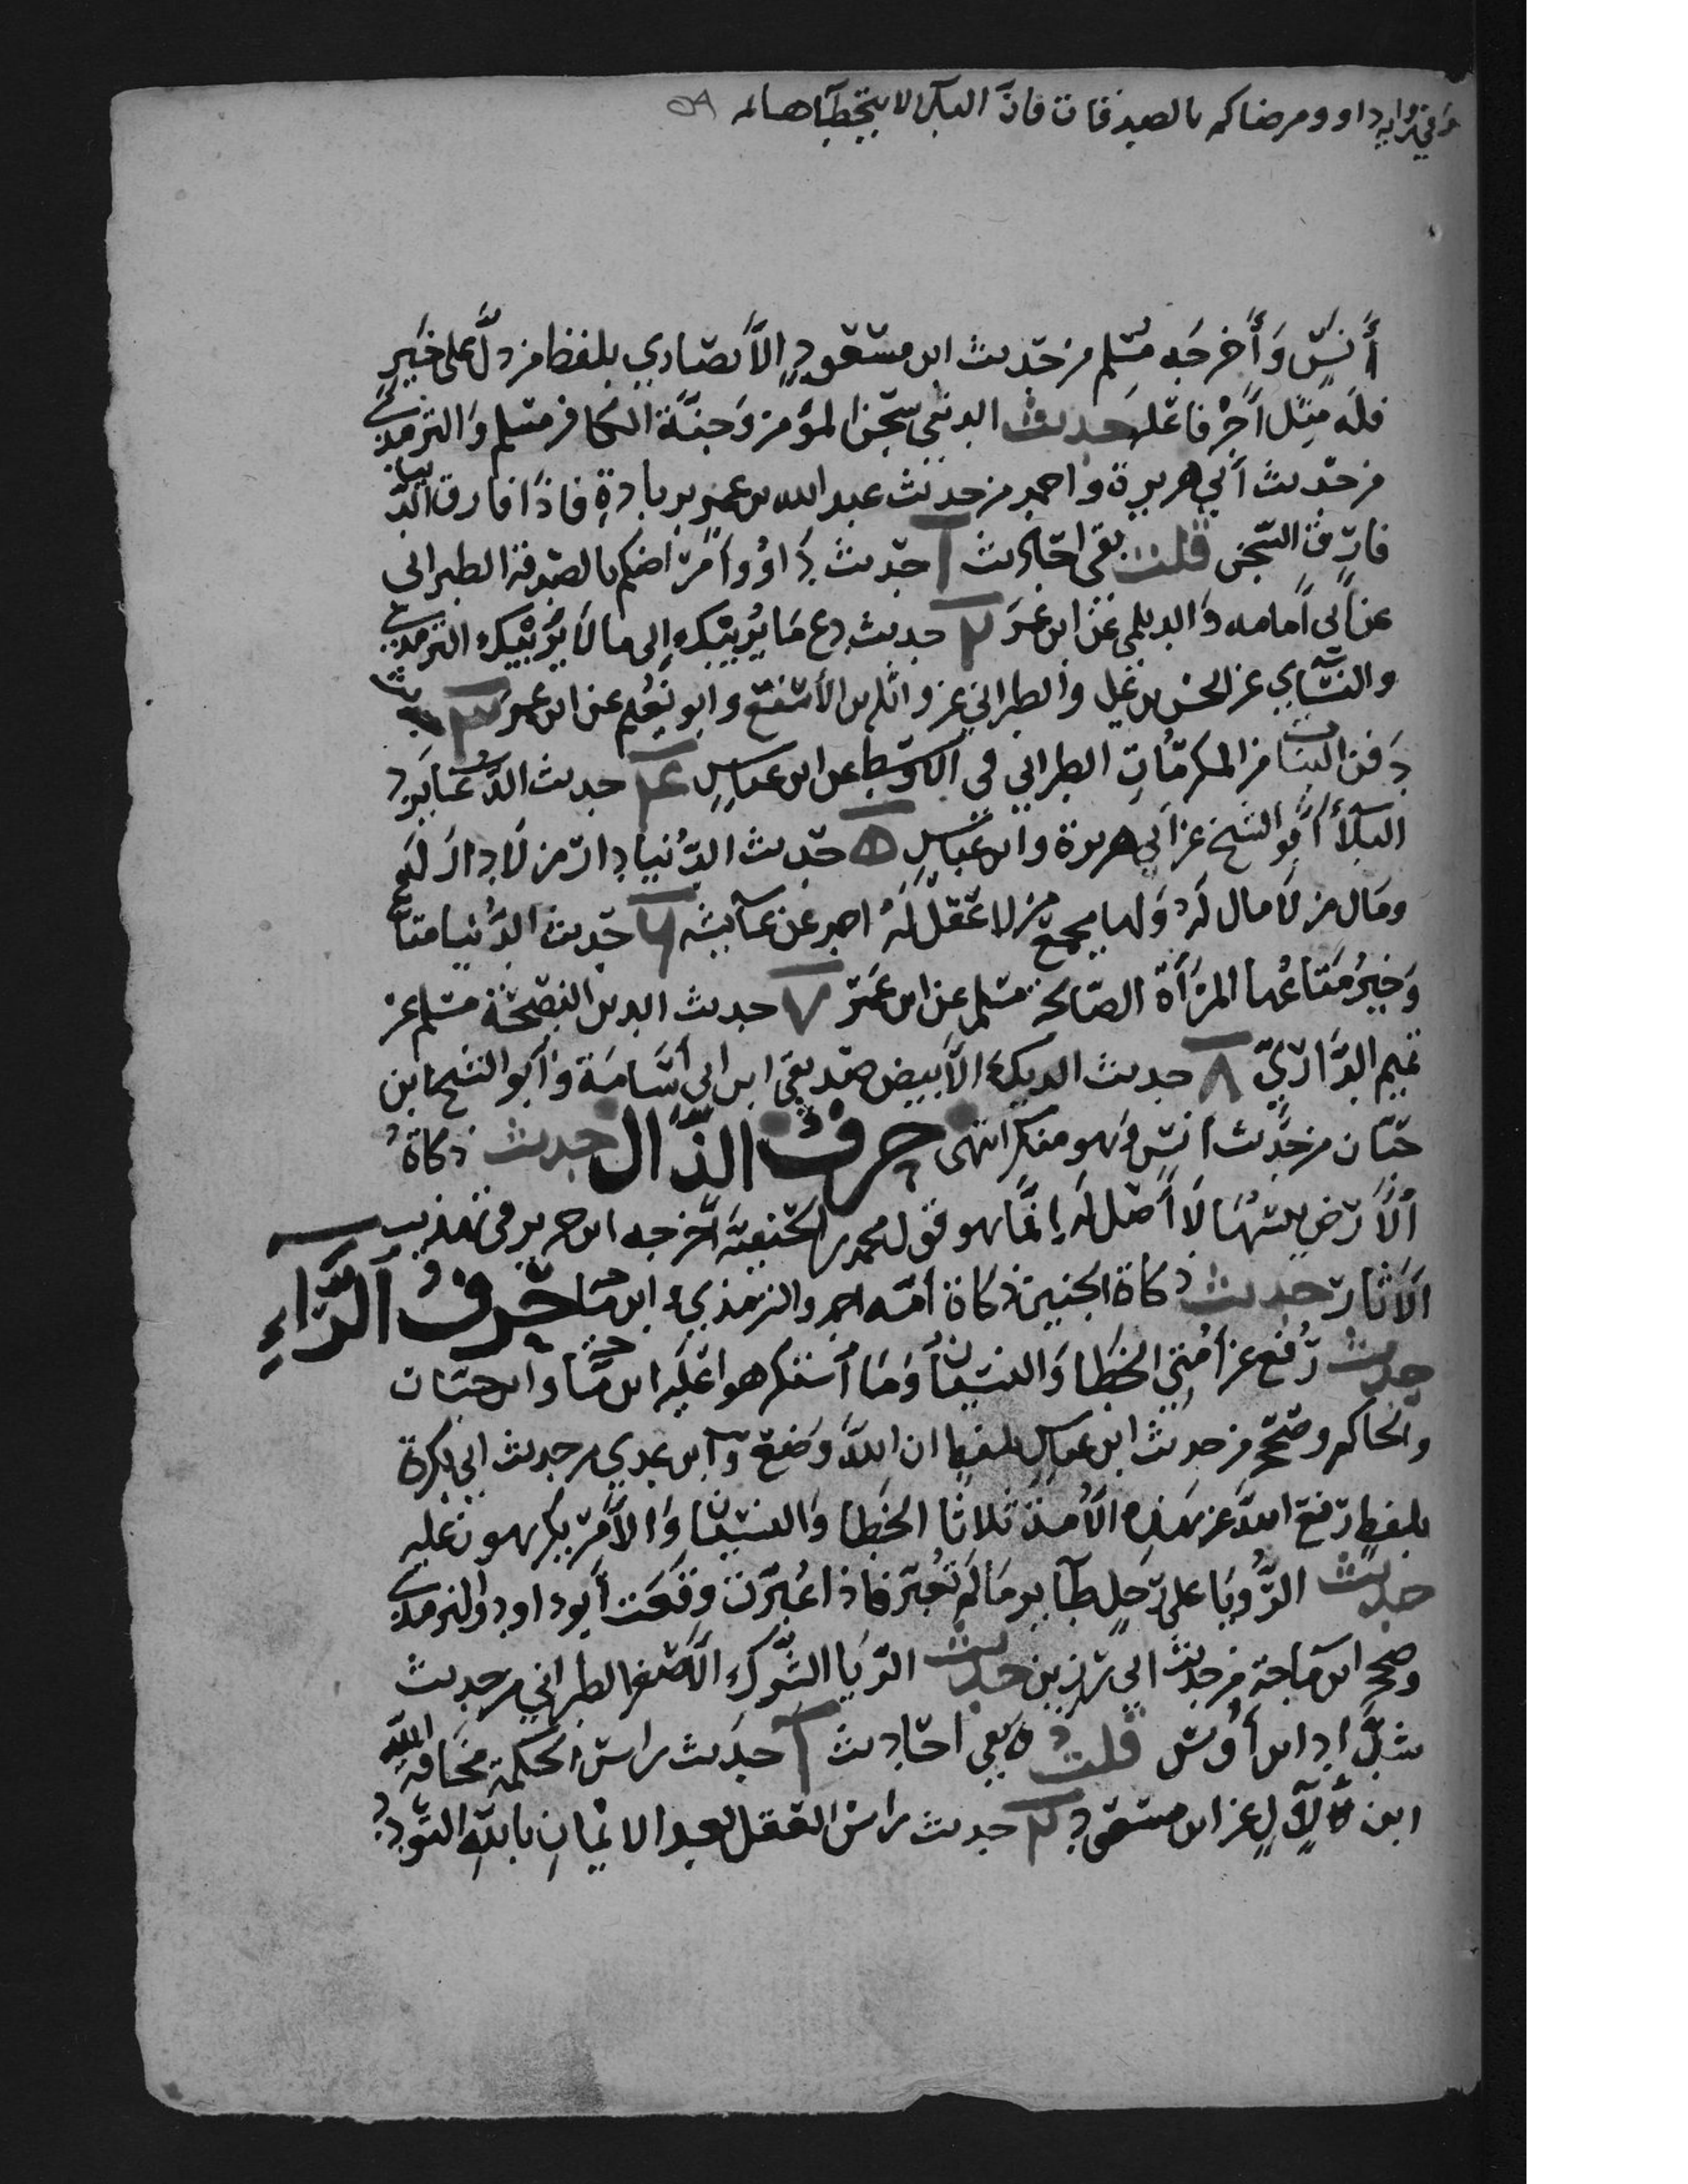 وفي رواية داووا مرضاكم بالصدقات فان البلا لا يتخطاها
أنس وأخرجه مسلم من حديث ابن مسعود الأنصاري بلفظ من دل على خير
فله مثل أجر فاعله حديث الدنيا سجن المؤمن وجنة الكافر مسلم والترمذي
من حديث أبي هريرة واحمد من حديث عبد الله بن عمر بزيادة فاذا فارق الدنيا
فارق السجن قلت بقي احاديث ١ حديث داووا مرضاكم بالصدقة الطبراني
عن أبي أمامه والديلمي عن ابن عمر ٢ حديث دع ما يريبك إلى ما لا يريبك الترمذي
والنسائي عن الحسن بن علي والطبراني عن واثلة بن الأسقع وابو نعيم عن ابن عمر ٣ حديث
دفن البنات من المكرمات الطبراني في الأوسط عن ابن عباس ٤ حديث الدعا يرد
البلأ أبو الشيخ عن أبي هريرة وابن عباس ٥ حديث الدنيا دار من لا دار له
ومال من لا مال له ولها يجمع من لا عقل له احمد عن عايشه ٦ حديث الدنيا متاع
وخير متاعها المرأة الصالحة مسلم عن ابن عمر ٧ حديث الدين النصيحة مسلم عن
تميم الداري ٨ حديث الديك الأبيض صديقي ابن ابي أسامة وأبو الشيخ ابن
حبان من حديث أنس وهو منكر انتهى حرف الذال حديث ذكاة
الأرض يبسها لا أصل له إنما هو قول محمد بن الحنفية أخرجه ابن جرير في تهذيب
الآثار حديث ذكاة الجنين ذكاة أمه احمد والترمذي وابن ماجه حرف الراء
حديث رفع عن أمتي الخطا والنسيان وما أستكرهوا عليه ابن ماجه وابن حبان
والحاكم وصححه من حديث ابن عباس بلفظ ان الله وضع وابن عدي من حديث ابي بكرة
بلفظ رفع الله عن هذه الأمة ثلاثا الخطا والنسيان والأمر يكرهون عليه
حديث الرؤيا على رجل طاير ما لم تعبر فاذا عبرت وقعت أبو داود والترمذي
وصححه ابن ماجة من حديث ابي رزين حديث الريا الشرك الأصغر الطبراني من حديث
شداد ابن أوس قلت بقي احاديث ١ حديث راس الحكمة مخافة الله
ابن لال عن ابن مسعود ٢ حديث راس العقل بعد الايمان بالله التودد